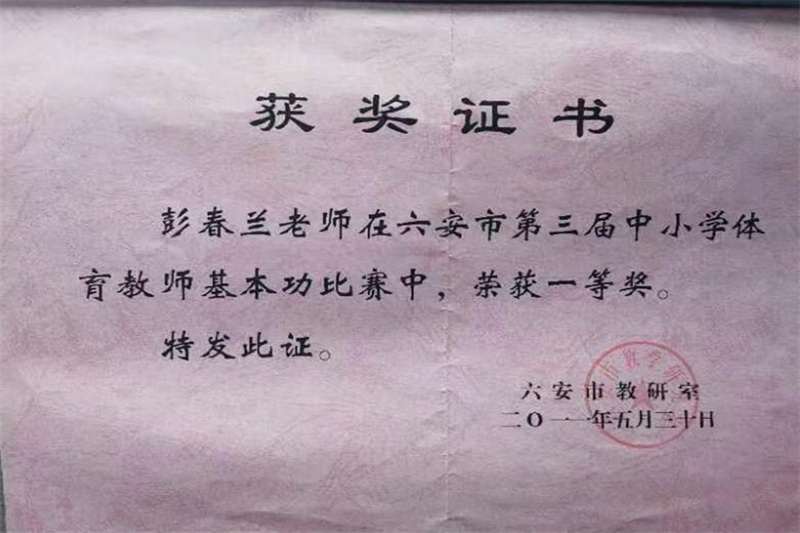 获奖证书
彭春兰老师在六安市第三届中小学体
育教师基本功比赛中，荣获一等奖。
特发此证。
六安市教研室
二〇一一年五月三十日